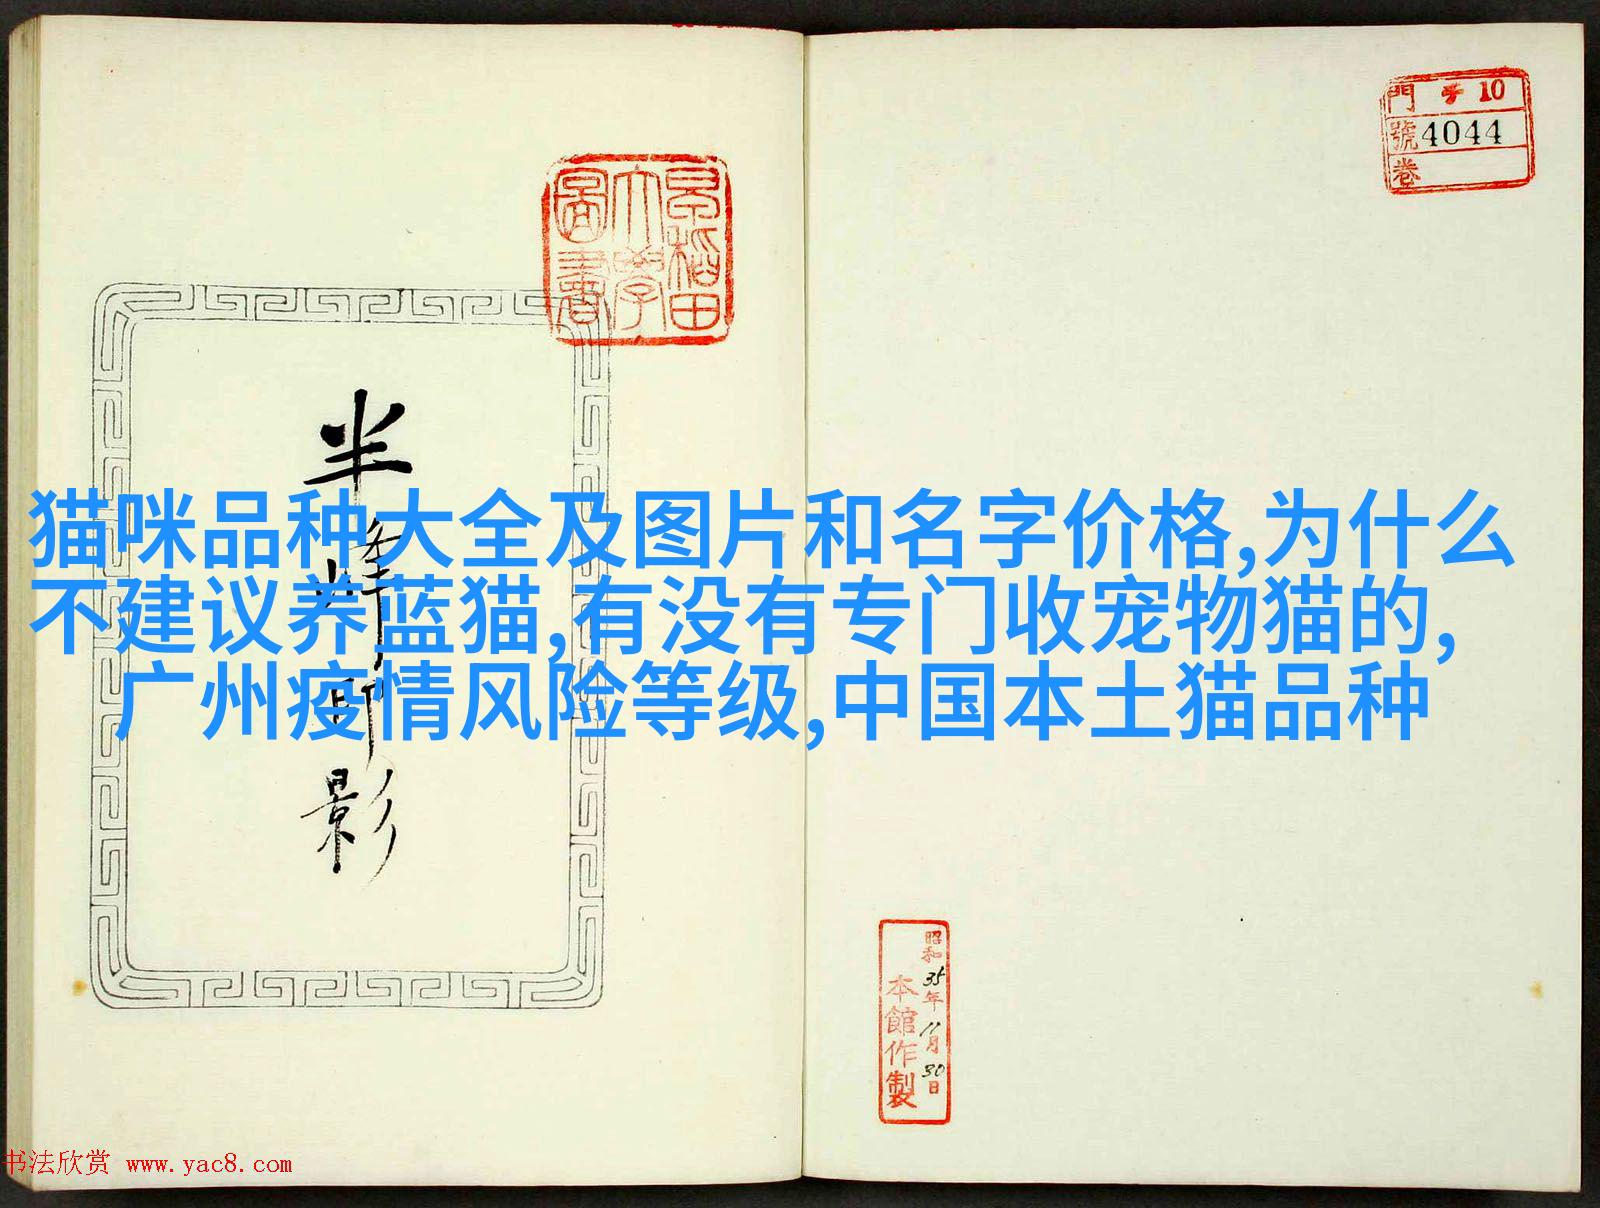 門 10
號 4044
卷
早稻田
大學
圖書
半
峰
印
影
猫咪品种大全及图片和名字价格,为什么
不建议养蓝猫,有没有专门收宠物猫的,
广州疫情风险等级,中国本土猫品种
昭和35年11月30日
本館作製
书法欣赏 www.yac8.com